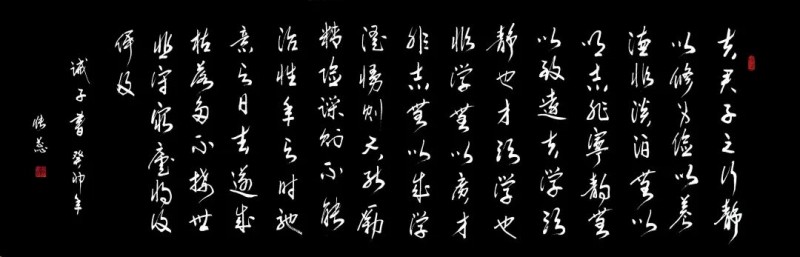 夫君子之行静
以修身俭以养
德非淡泊無以
明志非寧静無
以致遠夫学须
静也才须学也
非学無以广才
非志無以成学
淫慢则不能励
精险躁则不能
治性年与时驰
意与日去遂成
枯落多不接世
悲守穷庐将復
何及
诫子書 癸卯年